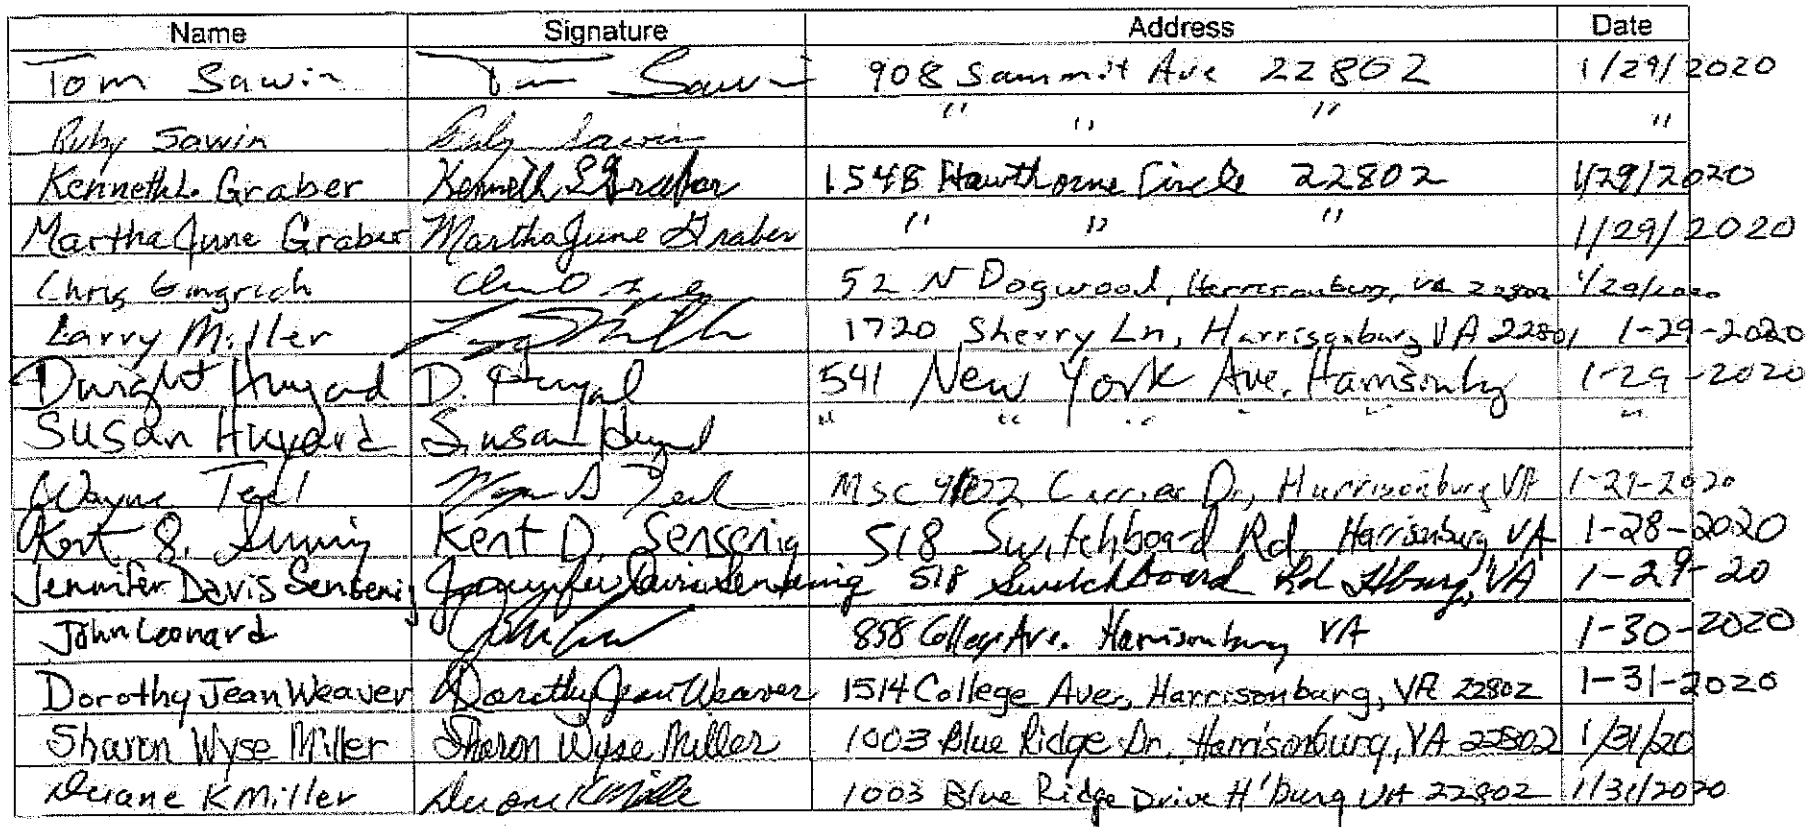 Name Signature Address Date
Tom Sawin Tom Sawin 908 Summit Ave 22802 1/29/2020
Ruby Sawin Ruby Sawin " " " "
Kenneth L. Graber Kenneth L Graber 1548 Hawthorne Circle 22802 1/29/2020
Martha June Graber Martha June Graber " " " 1/29/2020
Chris Gingrich 52 N Dogwood, Harrisonburg, VA 22802 1/29/2020
Larry Miller Larry Miller 1720 Sherry Ln, Harrisonburg VA 22801 1-29-2020
Dwight Huyard D. Huyard 541 New York Ave. Harrisonburg 1-29-2020
Susan Huyard Susan Huyard " " " " " "
Wayne Teel Wayne S Teel MSC Carrier Dr, Harrisonburg VA 1-29-2020
Kent D. Sensenig Kent D. Sensenig 518 Switchboard Rd, Harrisonburg, VA 1-28-2020
Jennifer Davis Sensenig Jennifer Davis Sensenig 518 Switchboard Rd Hburg, VA 1-29-20
John Leonard 858 College Ave. Harrisonburg VA 1-30-2020
Dorothy Jean Weaver Dorothy Jean Weaver 1514 College Ave, Harrisonburg, VA 22802 1-31-2020
Sharon Wyse Miller Sharon Wyse Miller 1003 Blue Ridge Dr. Harrisonburg, VA 22802 1/31/20
Duane K Miller Duane K Miller 1003 Blue Ridge Drive H'burg VA 22802 1/31/2020